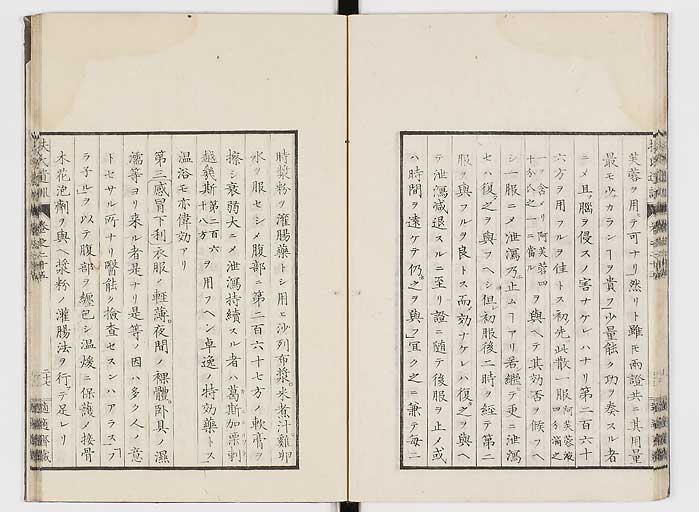 芙蓉ヲ用テ可ナリ然リト雖モ両證共ニ其用量
最モ少カランヿヲ貴フ少量能ク功ヲ奏スル者
ニメ且腦ヲ侵スノ害ナケレハナリ第二百六十
六方ヲ用フルヲ佳トス初先此散一服阿芙蓉液四分滴之
一ヲ含メリ阿芙蓉四十分八之一ニ當ルヲ與ヘテ其効否ヲ候フヘ
シ一服ニメ泄瀉乃止ムヿアリ若繼テ更ニ泄瀉
セハ復之ヲ與フヘシ但初服後二時ヲ経テ第二
服ヲ與フルヲ良トス而効ナケレハ復之ヲ與ヘ
テ泄瀉減退スルニ至リ證ニ随テ後服ヲ止メ或
ハ時間ヲ遠ケテ仍之ヲ與フ宜ク之ニ兼テ毎二
時漿粉ヲ灌腸藥トシ用ヒ沙列布漿米煮汁雞卵
水ヲ服セシメ腹部ニ第二百六十七方ノ軟膏ヲ
擦シ衰弱大ニメ泄瀉持續スル者ハ葛斯加栗剌
越幾斯第二百六十八方ヲ用フヘシ卓逸ノ特効藥トス
温浴モ亦偉効アリ
第三感冒下利衣服ノ軽薄夜間ノ裸體臥具ノ濕
濡等ヨリ来ル者是ナリ是等ノ因ハ多ク人ノ意
トセサル所ナリ醫能ク検査セスンハアラス フ
ラ子ルヲ以テ腹部ヲ纏包シ温煖ニ保護メ接骨
木花泡劑ヲ與ヘ漿粉ノ灌腸法ヲ行テ足レリ
扶氏遺訓 卷之十五 二十七 適適齋藏